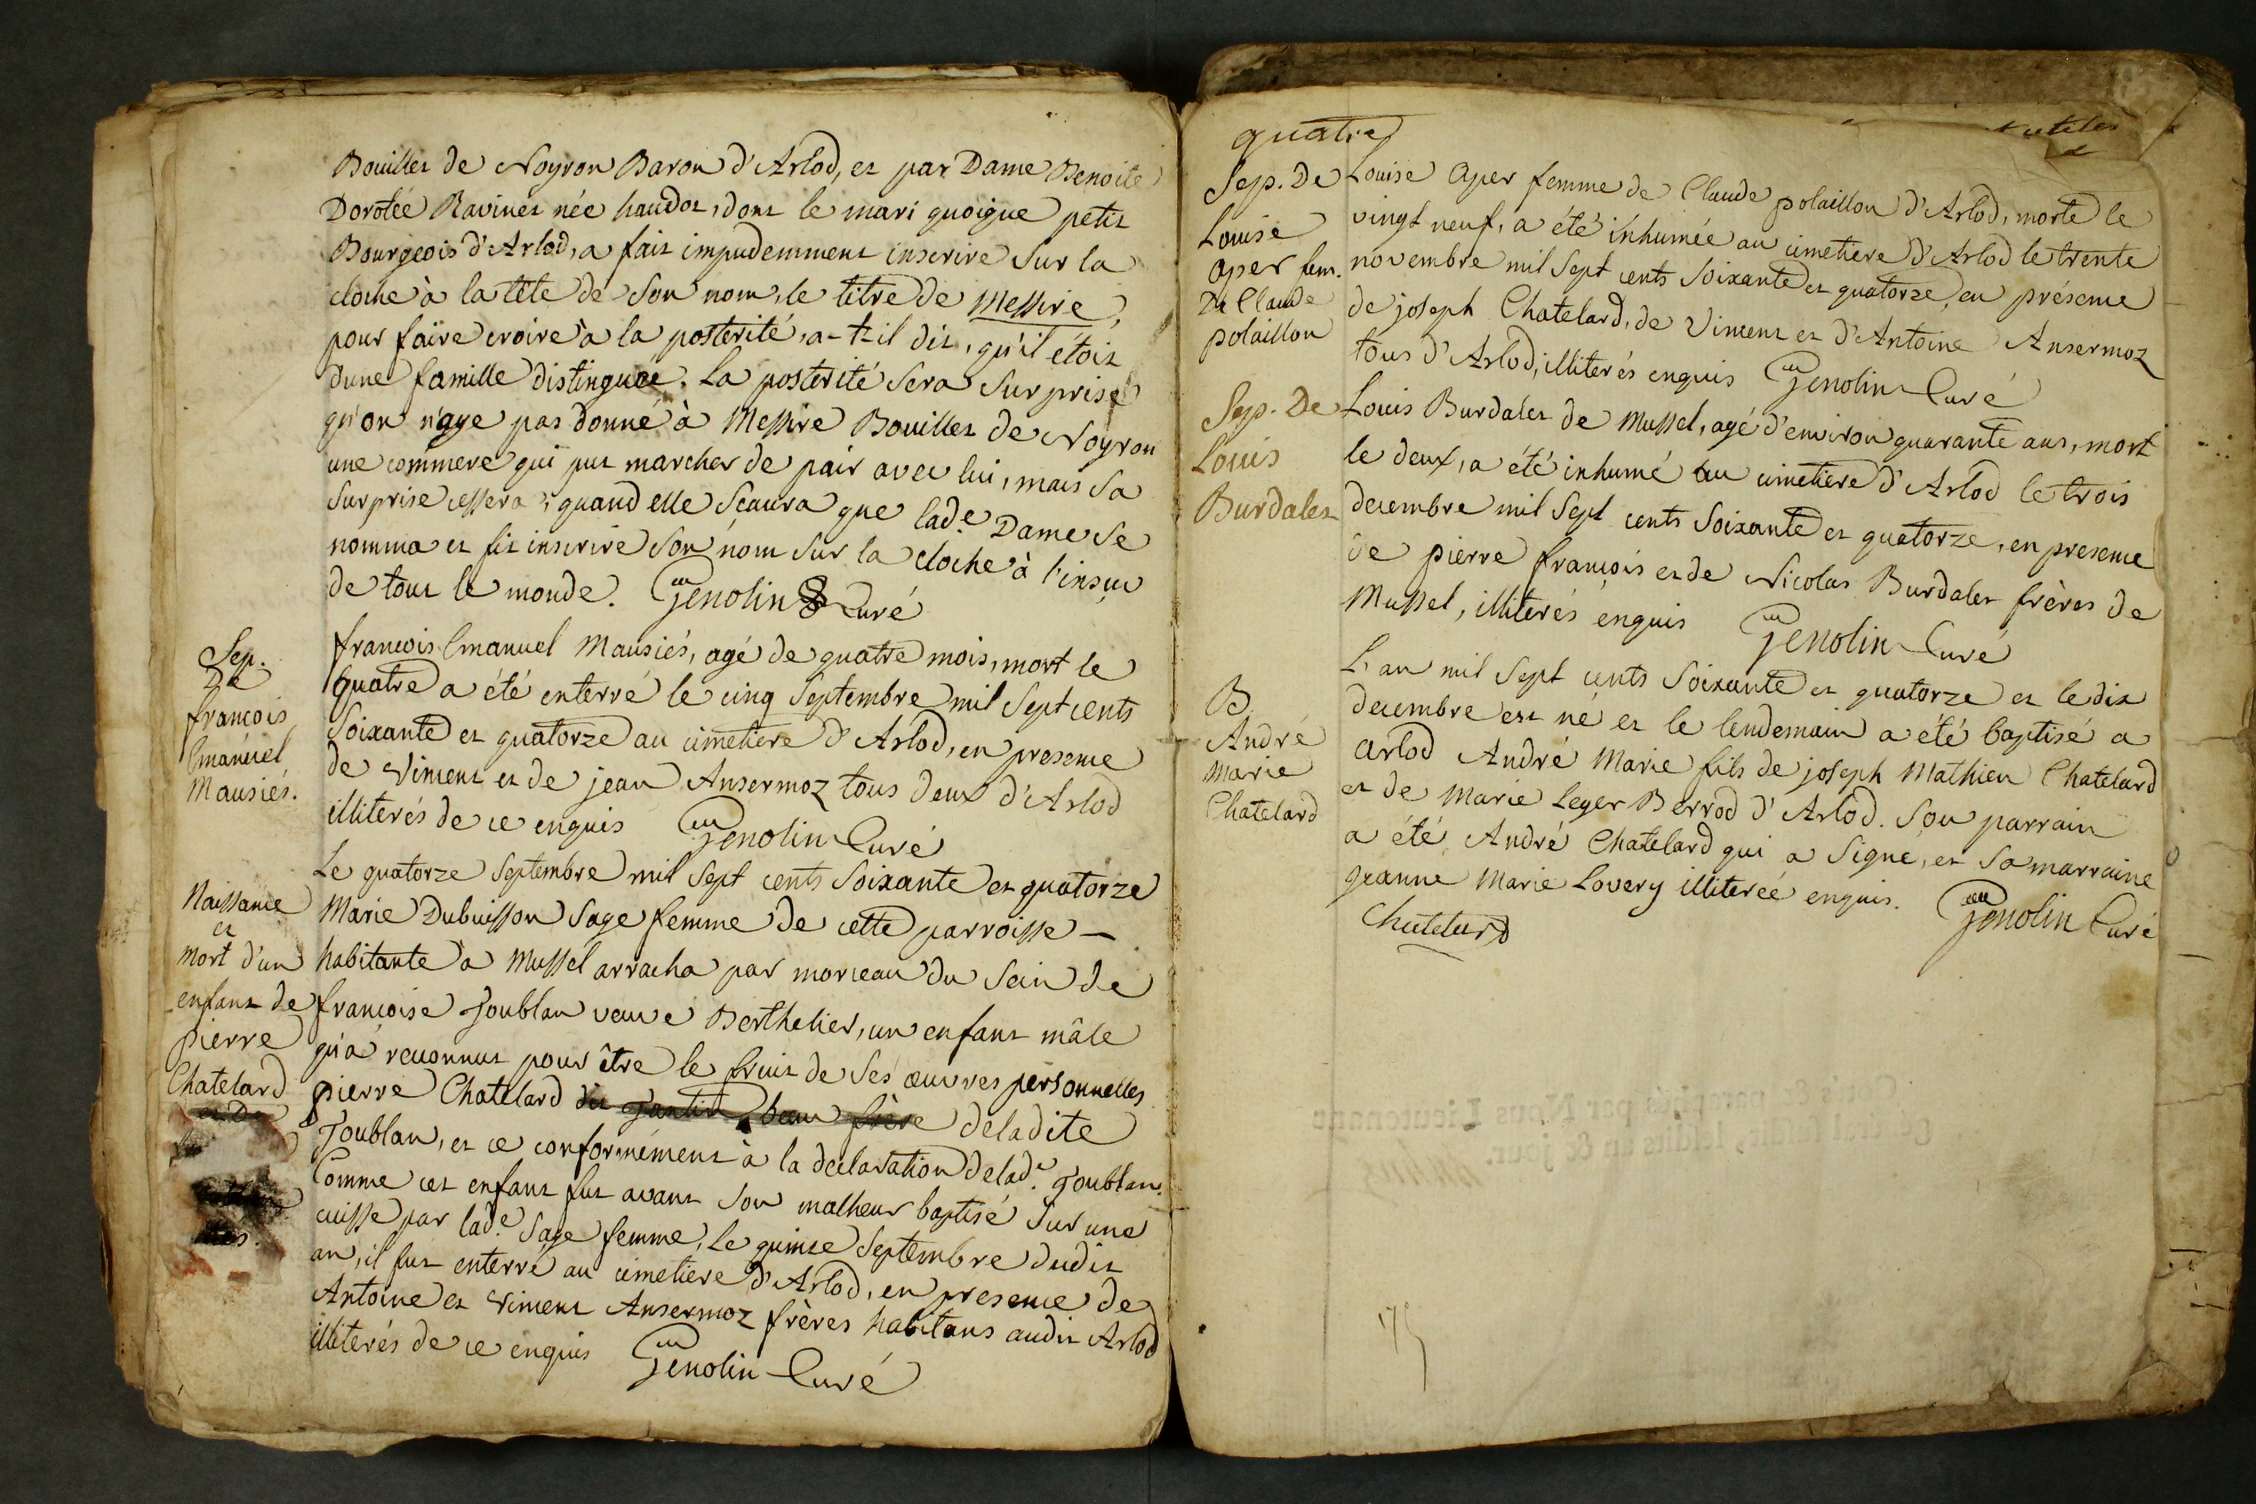 Bouillet de Noyron Baron d'Arlod, et par Dame Benoite
Dorotée Ravinet née haudot, dont le mari quoique petit
Bourgeois d'Arlod, a fait impudemment inscrire sur la
cloche à la tête de son nom, le titre de Messire,
pour faire croire à la posterité, a-t-il dit, qu'il étoit
dune famille distinguée. La posterité sera surprise
qu'on n'aye pas donné à Messire Bouillet de Noyron
une commere qui put marcher de pair avec lui, mais sa
surprise cessera, quand elle sçaura que lad.e Dame se
nomma et fit inscrire son nom sur la cloche à l'insçu
de tout le monde. Genolin Curé
Sep.
De
françois
Emanuel
Mausiés.
françois Emanuel Mausiés, agé de quatre mois, mort le
quatre a été enterré le cinq septembre mil sept cents
soixante et quatorze au cimetiere d'Arlod, en presence
de Vincent et de jean Ansermoz tous deux d'Arlod
illiterés de ce enquis Genolin Curé
Naissance
et
mort d'un
enfant de
pierre
Chatelard
et De
Le quatorze septembre mil sept cents soixante et quatorze
Marie Dubuisson sage femme de cette parroisse -
habitante à Mussel arracha par morceau du sein de
françoise Joublan veuve Berthelier, un enfant mâle
qu'a reconnut pour être le fruit de ses œuvres personnelles
pierre Chatelard dit beau frère deladite
Joublan, et ce conformément à la declaration delad.e Joublan.
Comme cet enfant fut avant son malheur baptisé sur une
cuisse par lad.e sage femme, le quinze septembre dudit
an, il fut enterré au cimetiere d'Arlod, en presence de
Antoine et Vincent Ansermoz frères habitans audit Arlod
illiterés de ce enquis Genolin Curé
quatre
Sep. De
Louise
aper fem.
De Claude
polaillon
Louise Aper femme de Claude polaillon d'Arlod, morte le
vingt neuf, a été inhumée au cimetiere d'Arlod le trente
novembre mil sept cents soixante et quatorze, en présence
de joseph Chatelard, de Vincent et d'Antoine Ansermoz
tous d'Arlod, illiterés enquis Genolin Curé
Sep. De
Louis
Burdalet
Louis Burdalet de Mussel, agé d'environ quarante ans, mort
le deux, a été inhumé au cimetiere d'Arlod le trois
decembre mil sept cents soixante et quatorze, en presence
de pierre françois et de Nicolas Burdalet frères de
Mussel, illiterés enquis Genolin Curé
B.
André
Marie
Chatelard
L'an mil sept cents soixante et quatorze et le dix
decembre est né et le lendemain a été baptisé a
arlod André Marie fils de joseph Mathieu Chatelard
et de Marie Leger Berrod d'Arlod. Son parrain
a été André Chatelard qui a signé, et sa marraine
jeanne Marie Lovery illiterée enquis. Genolin Curé
Chatelard